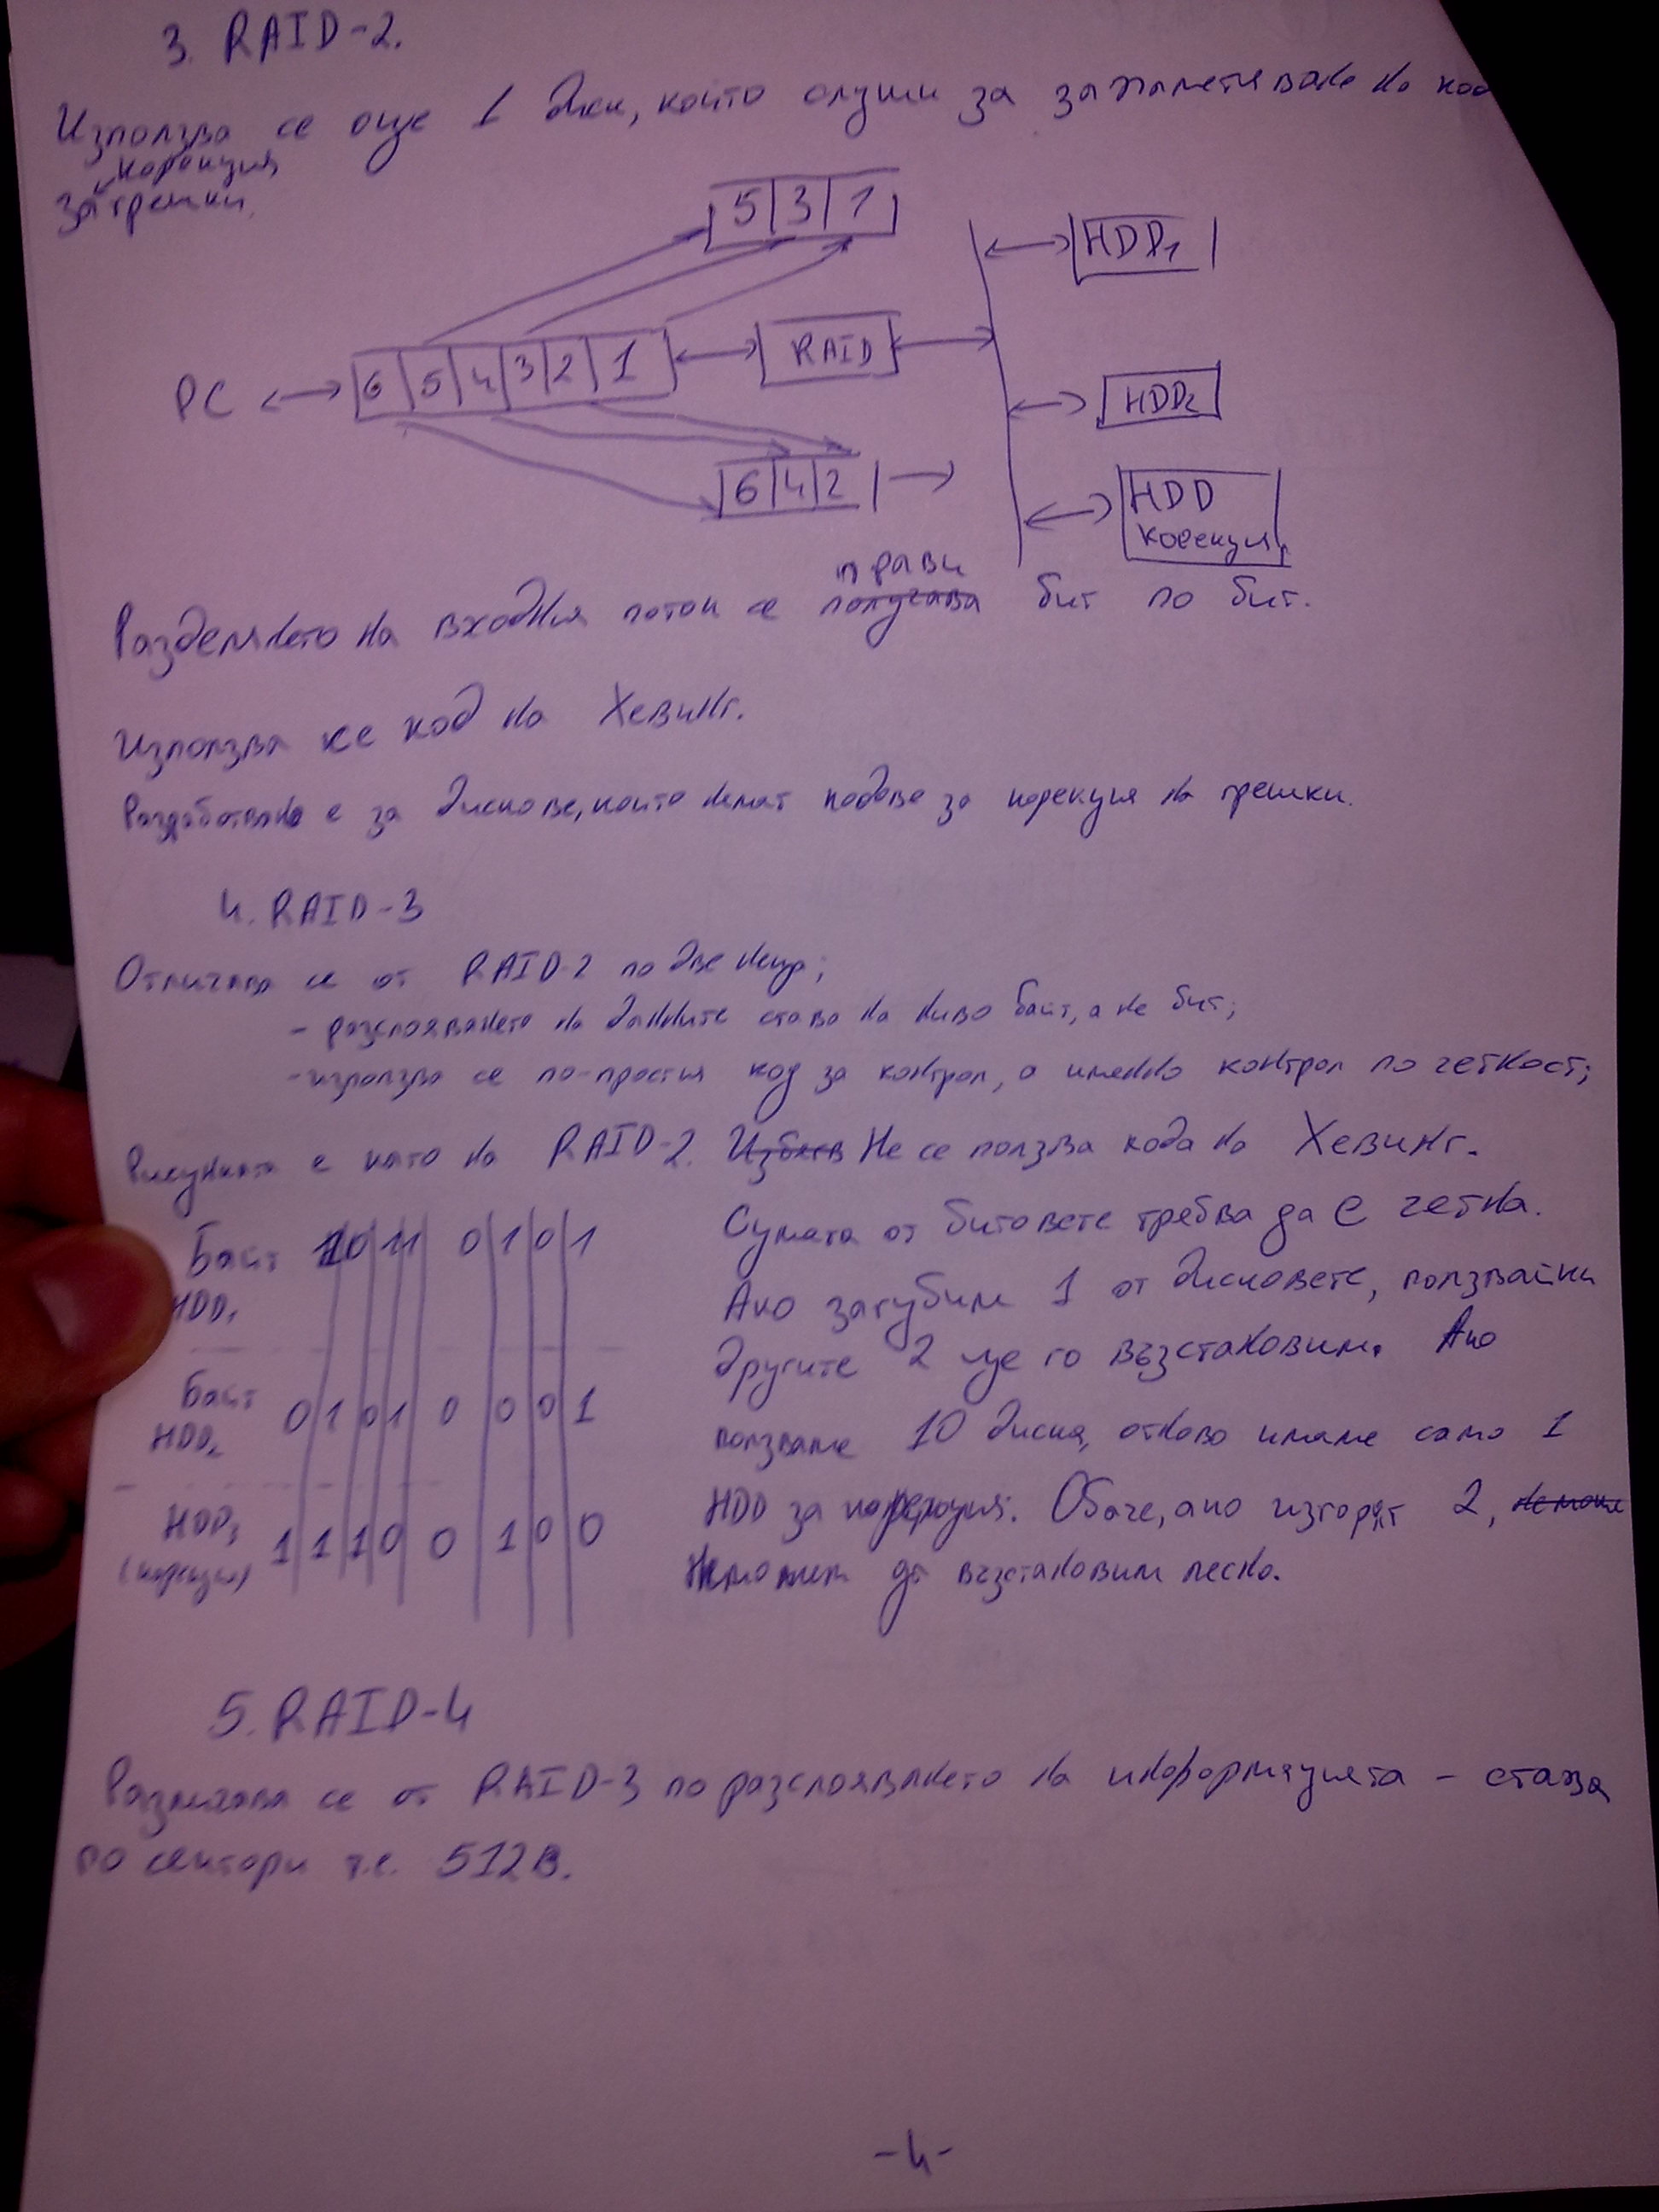 3. RAID-2.
Използва се още 1 диск, който служи за запаметяване на код
корекция
за грешки.
5 3 1
HDD1
PC 6 5 4 3 2 1 RAID
HDD2
6 4 2
HDD
корекция
прави
Разделянето на входния поток се получава бит по бит.
Използва се код на Хевинг.
Разработвано е за дискове, които нямат кодове за корекция на грешки.
4. RAID-3
Отличава се от RAID-2 по две неща;
- разслояването на данните става на ниво байт, а не бит;
- използва се по-простия код за контрол, а именно контрол по четност;
Рисунката е като на RAID-2. Не се ползва кода на Хевинг.
Байт 10 11 0 1 0 1
HDD1
Сумата от битовете трябва да е четна.
Ако загубим 1 от дисковете, ползвайки
другите 2 ще го възстановим. Ако
Байт
HDD2 0 1 0 1 0 0 0 1
ползваме 10 диска, отново имаме само 1
HDD3
(корекция) 1 1 1 0 0 1 0 0
HDD за корекция. Обаче, ако изгорят 2,
не можем да възстановим лесно.
5. RAID-4
Различава се от RAID-3 по разслояването на информацията - става
по сектори т.е. 512B.
-4-